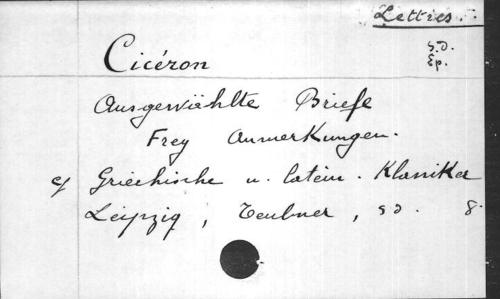 Lettres.
s.d.
Ep.
Cicéron
Ausgewählte Briefe
Frey Anmerkungen.
cf Griechische u. latein. Klassiker
Leipzig, Teubner, s d. 8.